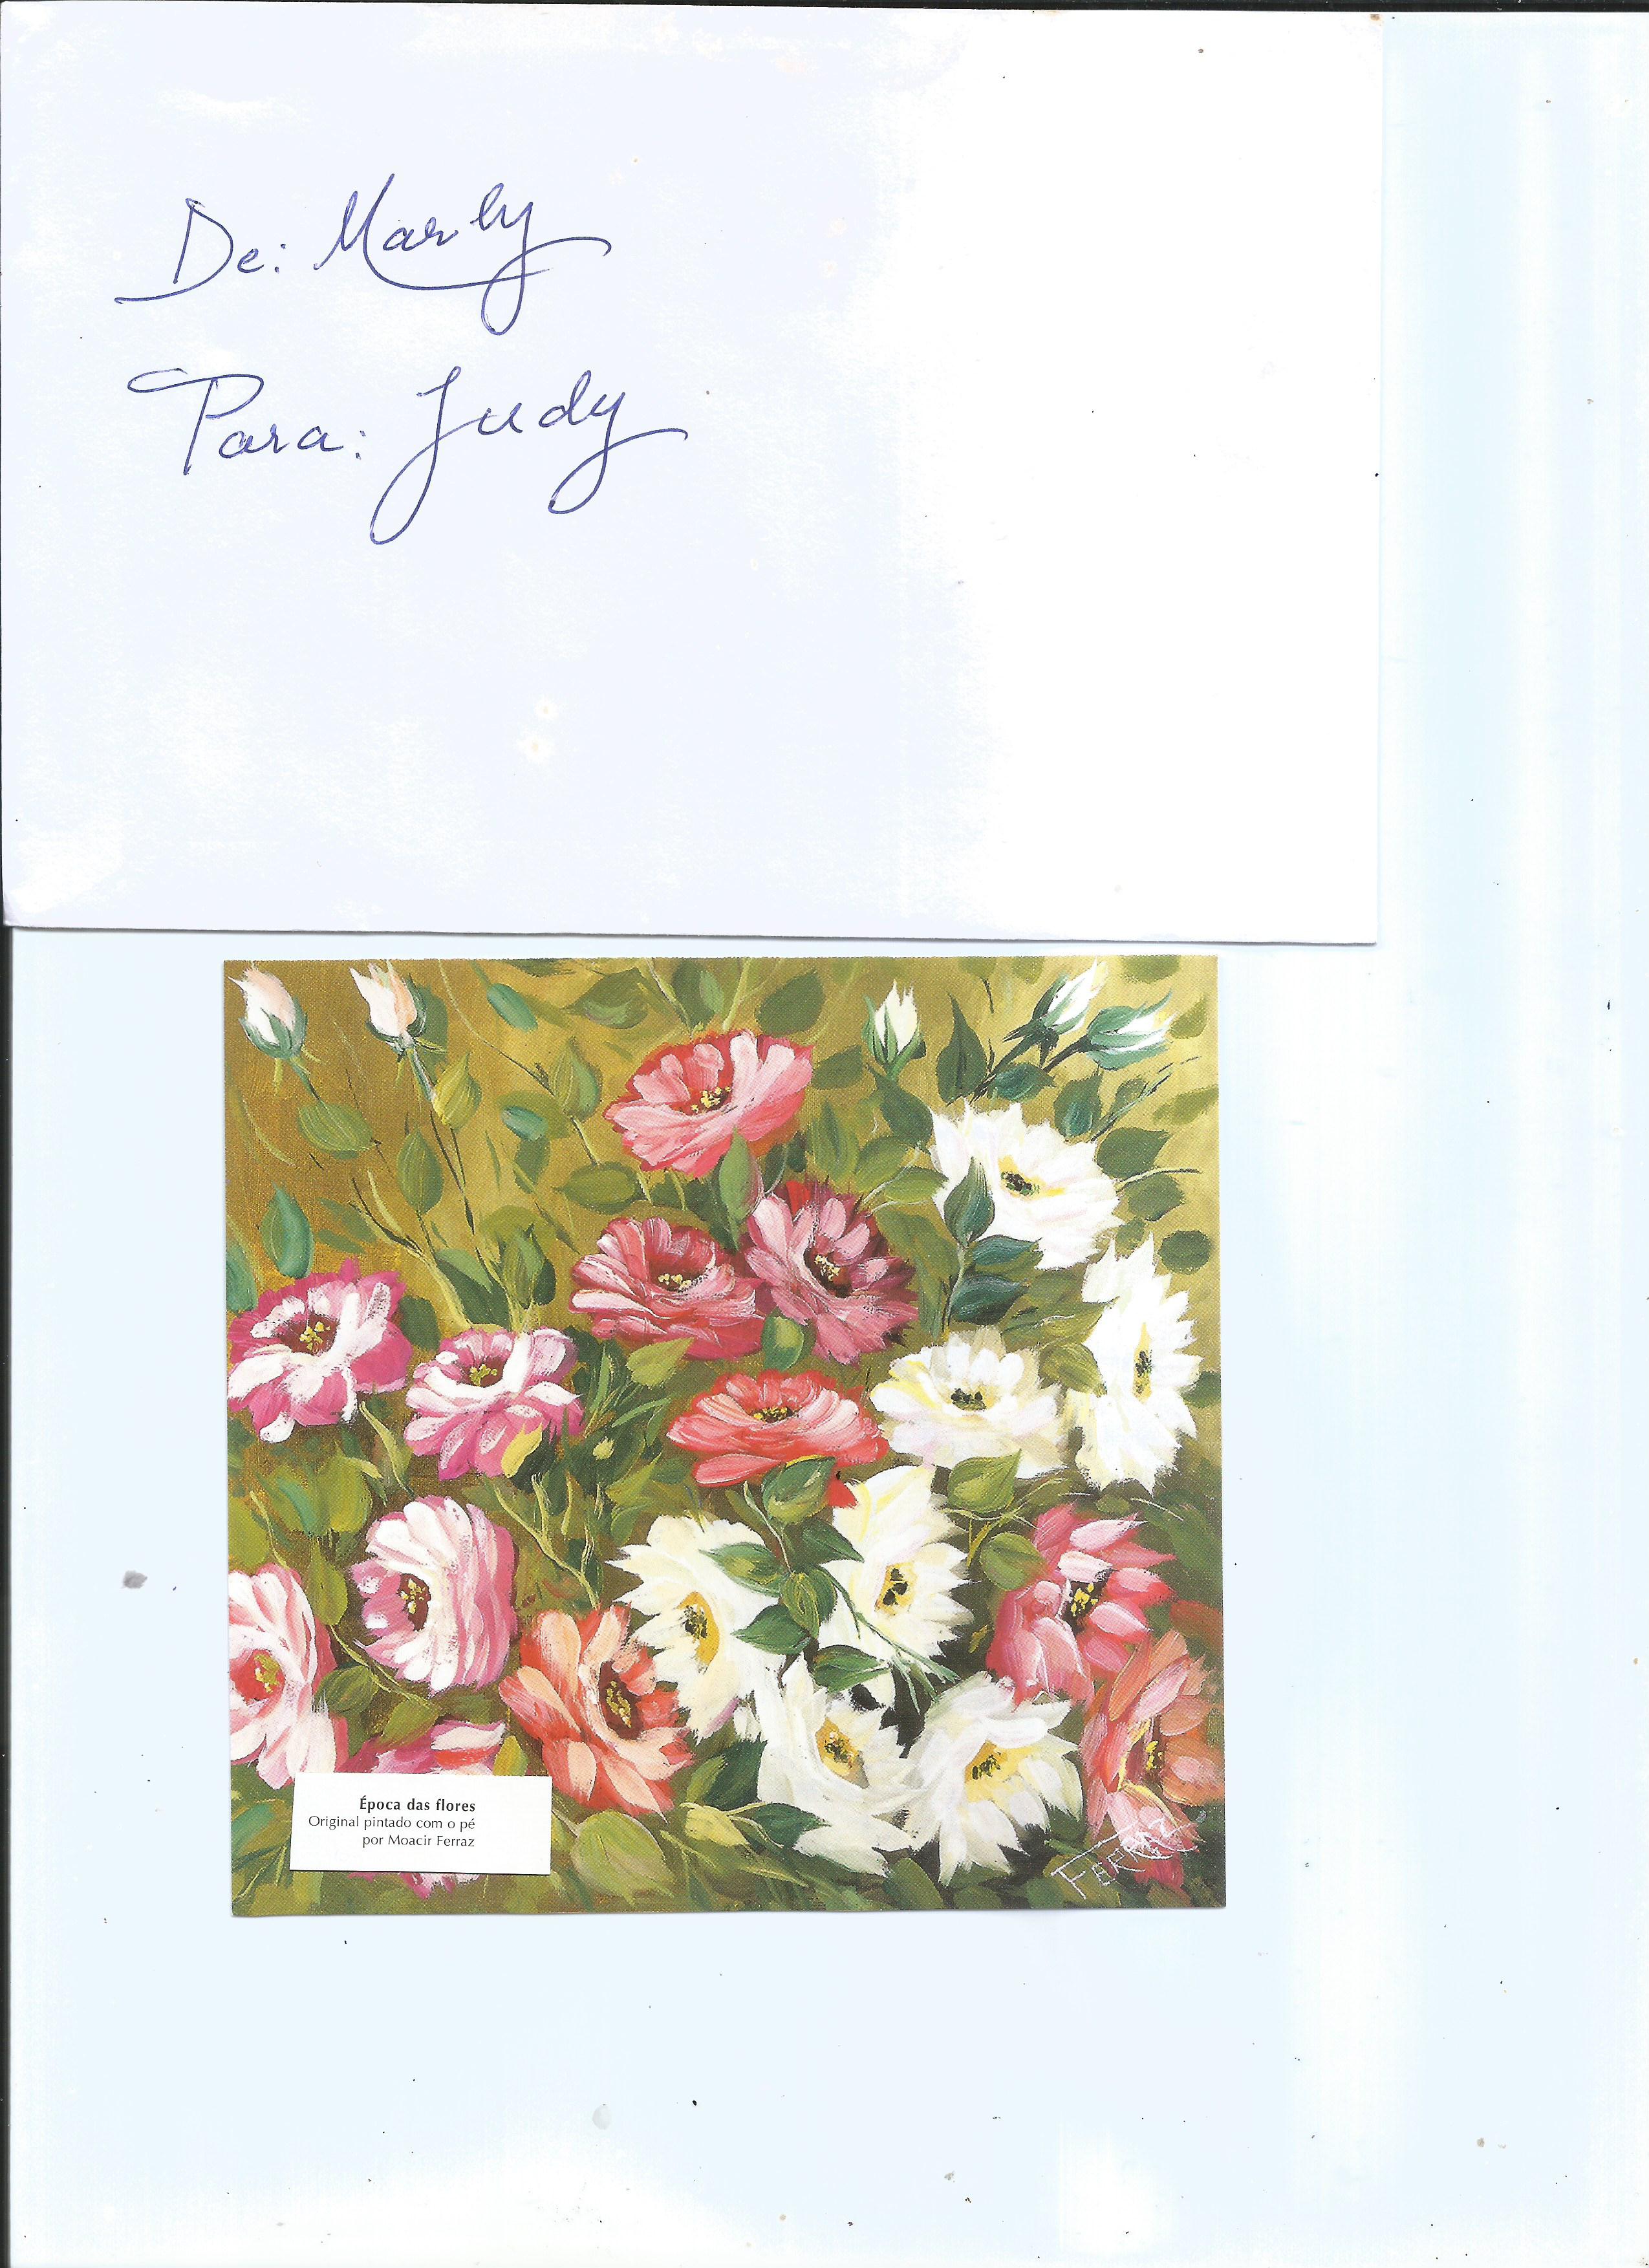 De: Marly
Para: Judy
Época das flores
Original pintado com o pé
por Moacir Ferraz
FERRAZ